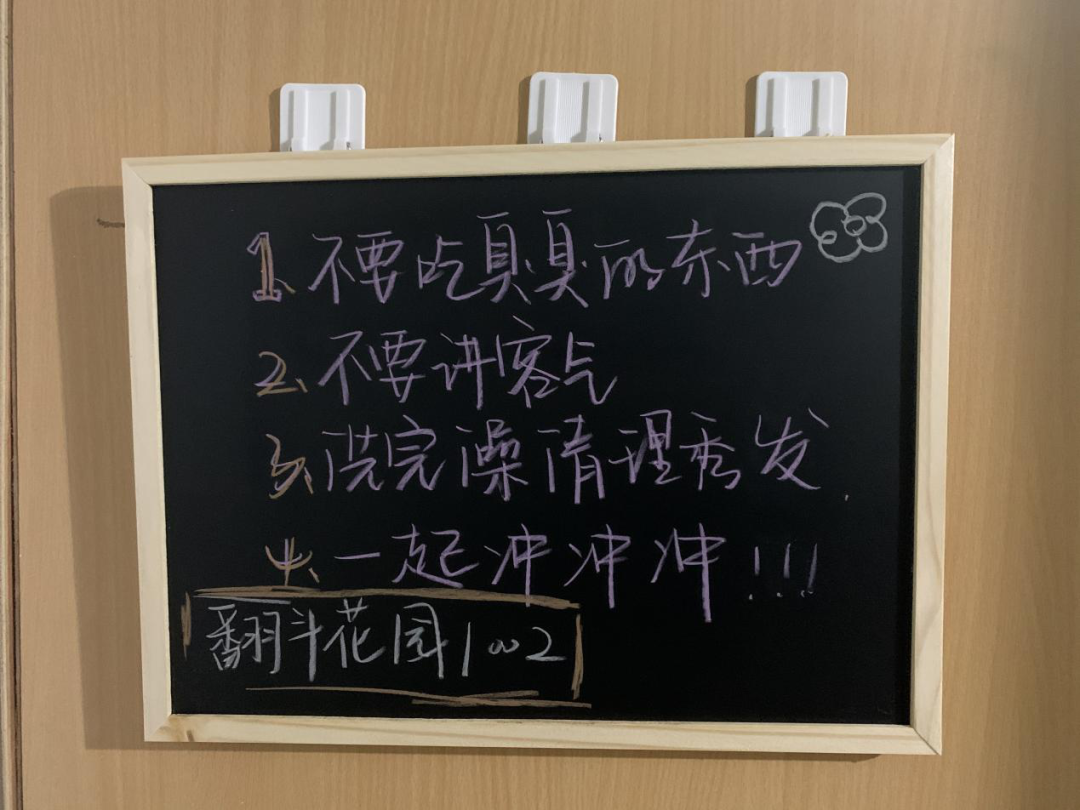 1、不要吃臭臭的东西
2、不要讲客气
3、洗完澡清理秀发.
4、一起冲冲冲!!!
翻斗花园1002